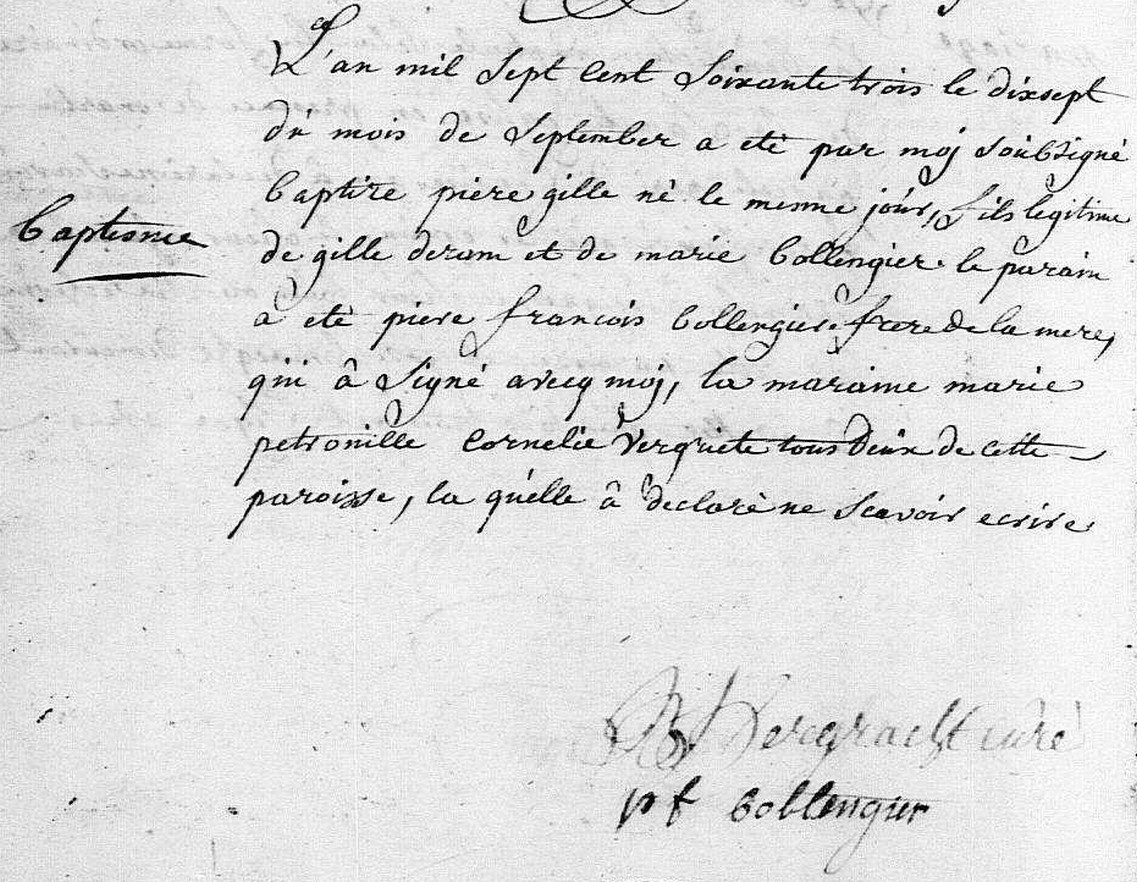 L'an mil sept cent soixante trois le dixsept
du mois de September a eté par moj soubsigné
Baptise piere gille né le mesme jour, fils legitime
Baptesme
de gille deram et de marie bollengier le parain
à eté piere francois bollengier frere de la mere,
qui à signé avecq moj, la maraine marie
petronille cornelie verquete tous deux de cette
paroisse, la quelle à declaré ne scavoir ecrire
curé
pf bollengier